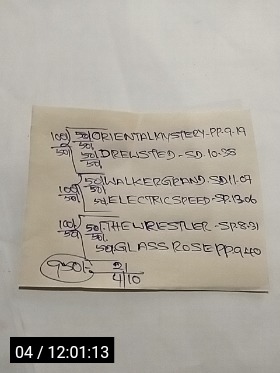 100 50 ORIENTAL MYSTERY-PP.9.19
50 50
50 DREWSTED-SD.10.38
50 WALKERGRAND.SD11.07
100 50
50 50 ELECTRICSPEED-SP.13.06
100 50 THEWRESTLER-SP.8.31
50 50
50 GLASSROSEPP.9.40
950 21
4/10
04 / 12:01:13